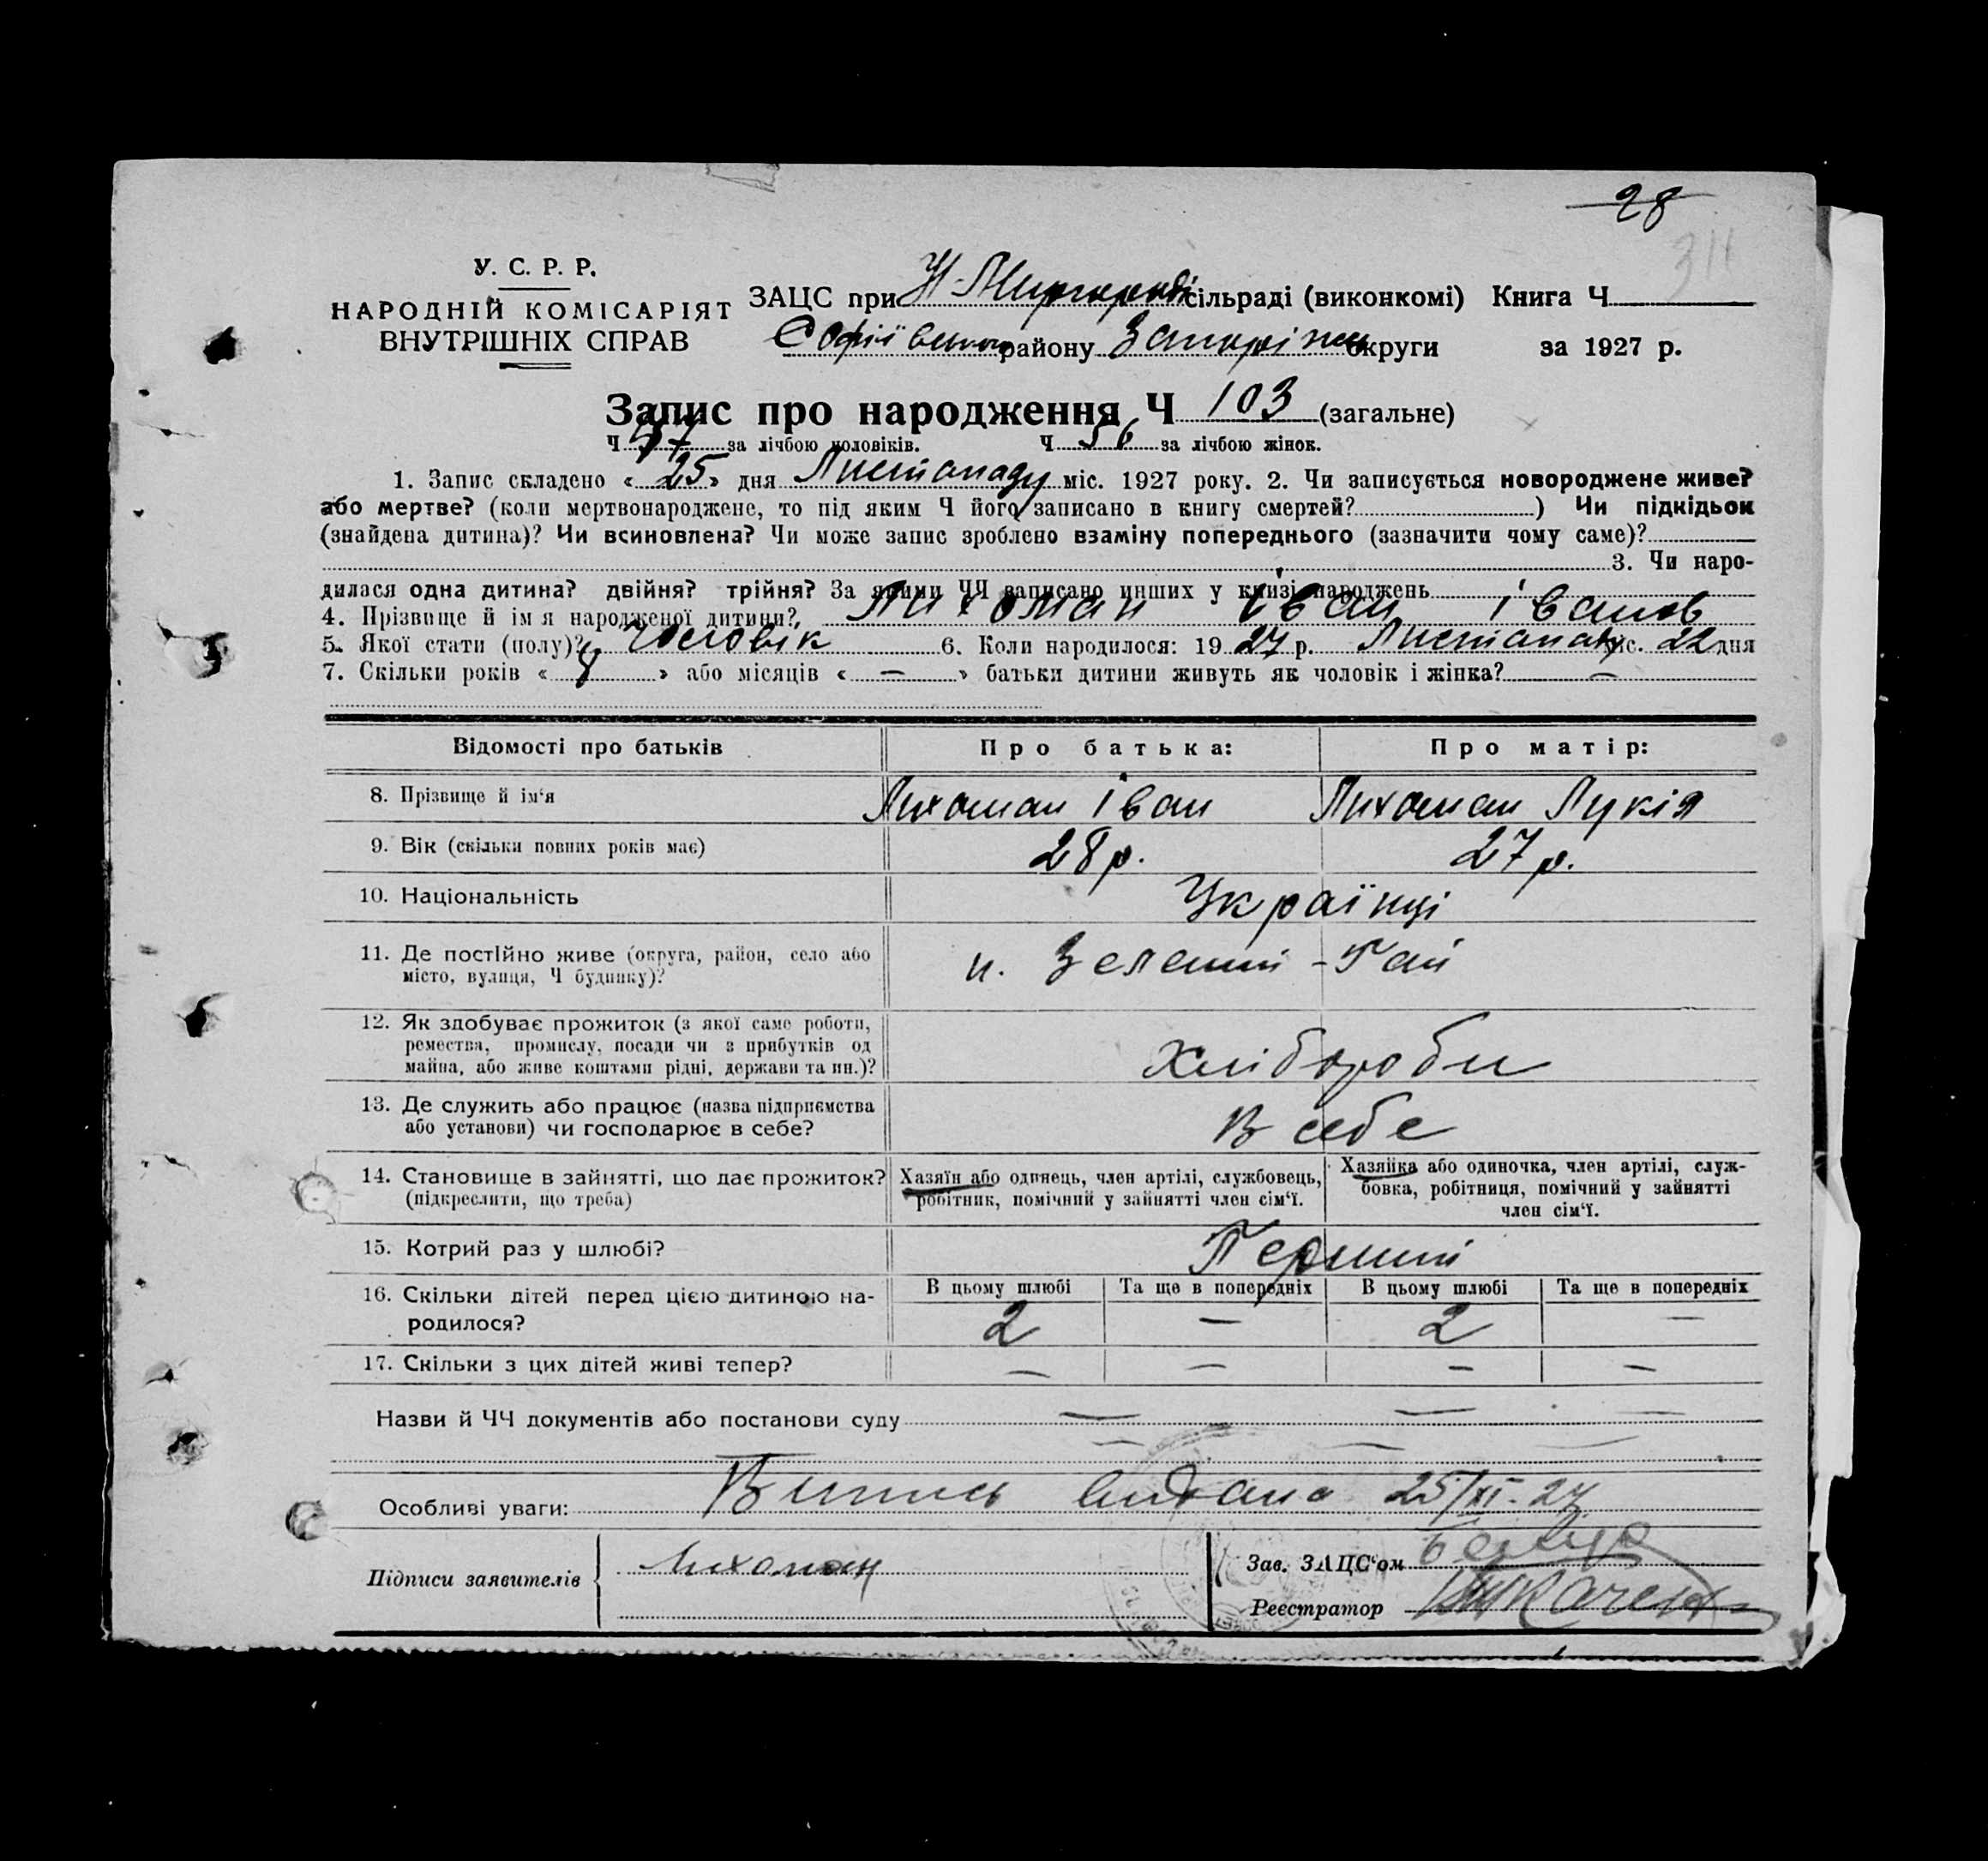 28
311
У. С. Р. Р.
НАРОДНІЙ КОМІСАРІЯТ
ВНУТРІШНІХ СПРАВ
ЗАЦС при Н-Миргороді сільраді (виконкомі) Книга Ч
Софіївськ району Запоріжж округи за 1927 р.
Запис про народження Ч 103 (загальне)
Ч 47 за лічбою чоловіків. Ч 56 за лічбою жінок.
1. Запис складено « 25 » дня Листопаду міс. 1927 року. 2. Чи записується новороджене живе?
або мертве? (коли мертвонароджене, то під яким Ч його записано в книгу смертей? ) Чи підкідьок
(знайдена дитина)? Чи всиновлена? Чи може запис зроблено взаміну попереднього (зазначити чому саме)?
3. Чи наро-
дилася одна дитина? двійня? трійня? За якими ЧЧ записано инших у книзі народжень
4. Прізвище й ім я народженої дитини? Лихоман Іван Іванов
5. Якої стати (полу)? Чоловік 6. Коли народилося: 1927 р. Листопаду міс. 22 дня
7. Скільки років « 8 » або місяців « — » батьки дитини живуть як чоловік і жінка? —
Відомості про батьків Про батька: Про матір:
8. Прізвище й ім'я Лихоман Іван Лихоман Лукія
9. Вік (скільки повних років має) 28 р. 27 р.
10. Національність Українці
11. Де постійно живе (округа, район, село або
місто, вулиця, Ч будинку)? п. Зелений-Гай
12. Як здобуває прожиток (з якої саме роботи,
ремества, промислу, посади чи з прибутків од
майна, або живе коштами рідні, держави та ин.)? Хлібороби
13. Де служить або працює (назва підприємства
або установи) чи господарює в себе? В себе
14. Становище в зайнятті, що дає прожиток?
(підкреслити, що треба)
Хазяїн або одинець, член артілі, службовець,
робітник, помічний у зайнятті член сім'ї.
Хазяйка або одиночка, член артілі, служ-
бовка, робітниця, помічний у зайнятті
член сім'ї.
15. Котрий раз у шлюбі? Перший
16. Скільки дітей перед цією дитиною на-
родилося?
В цьому шлюбі Та ще в попередніх В цьому шлюбі Та ще в попередніх
2 — 2 —
17. Скільки з цих дітей живі тепер? — — — —
Назви й ЧЧ документів або постанови суду — — —
Особливі уваги: Випись видана 25/XI-27
Підписи заявителів Лихоман
Зав. ЗАЦС'ом
Реєстратор